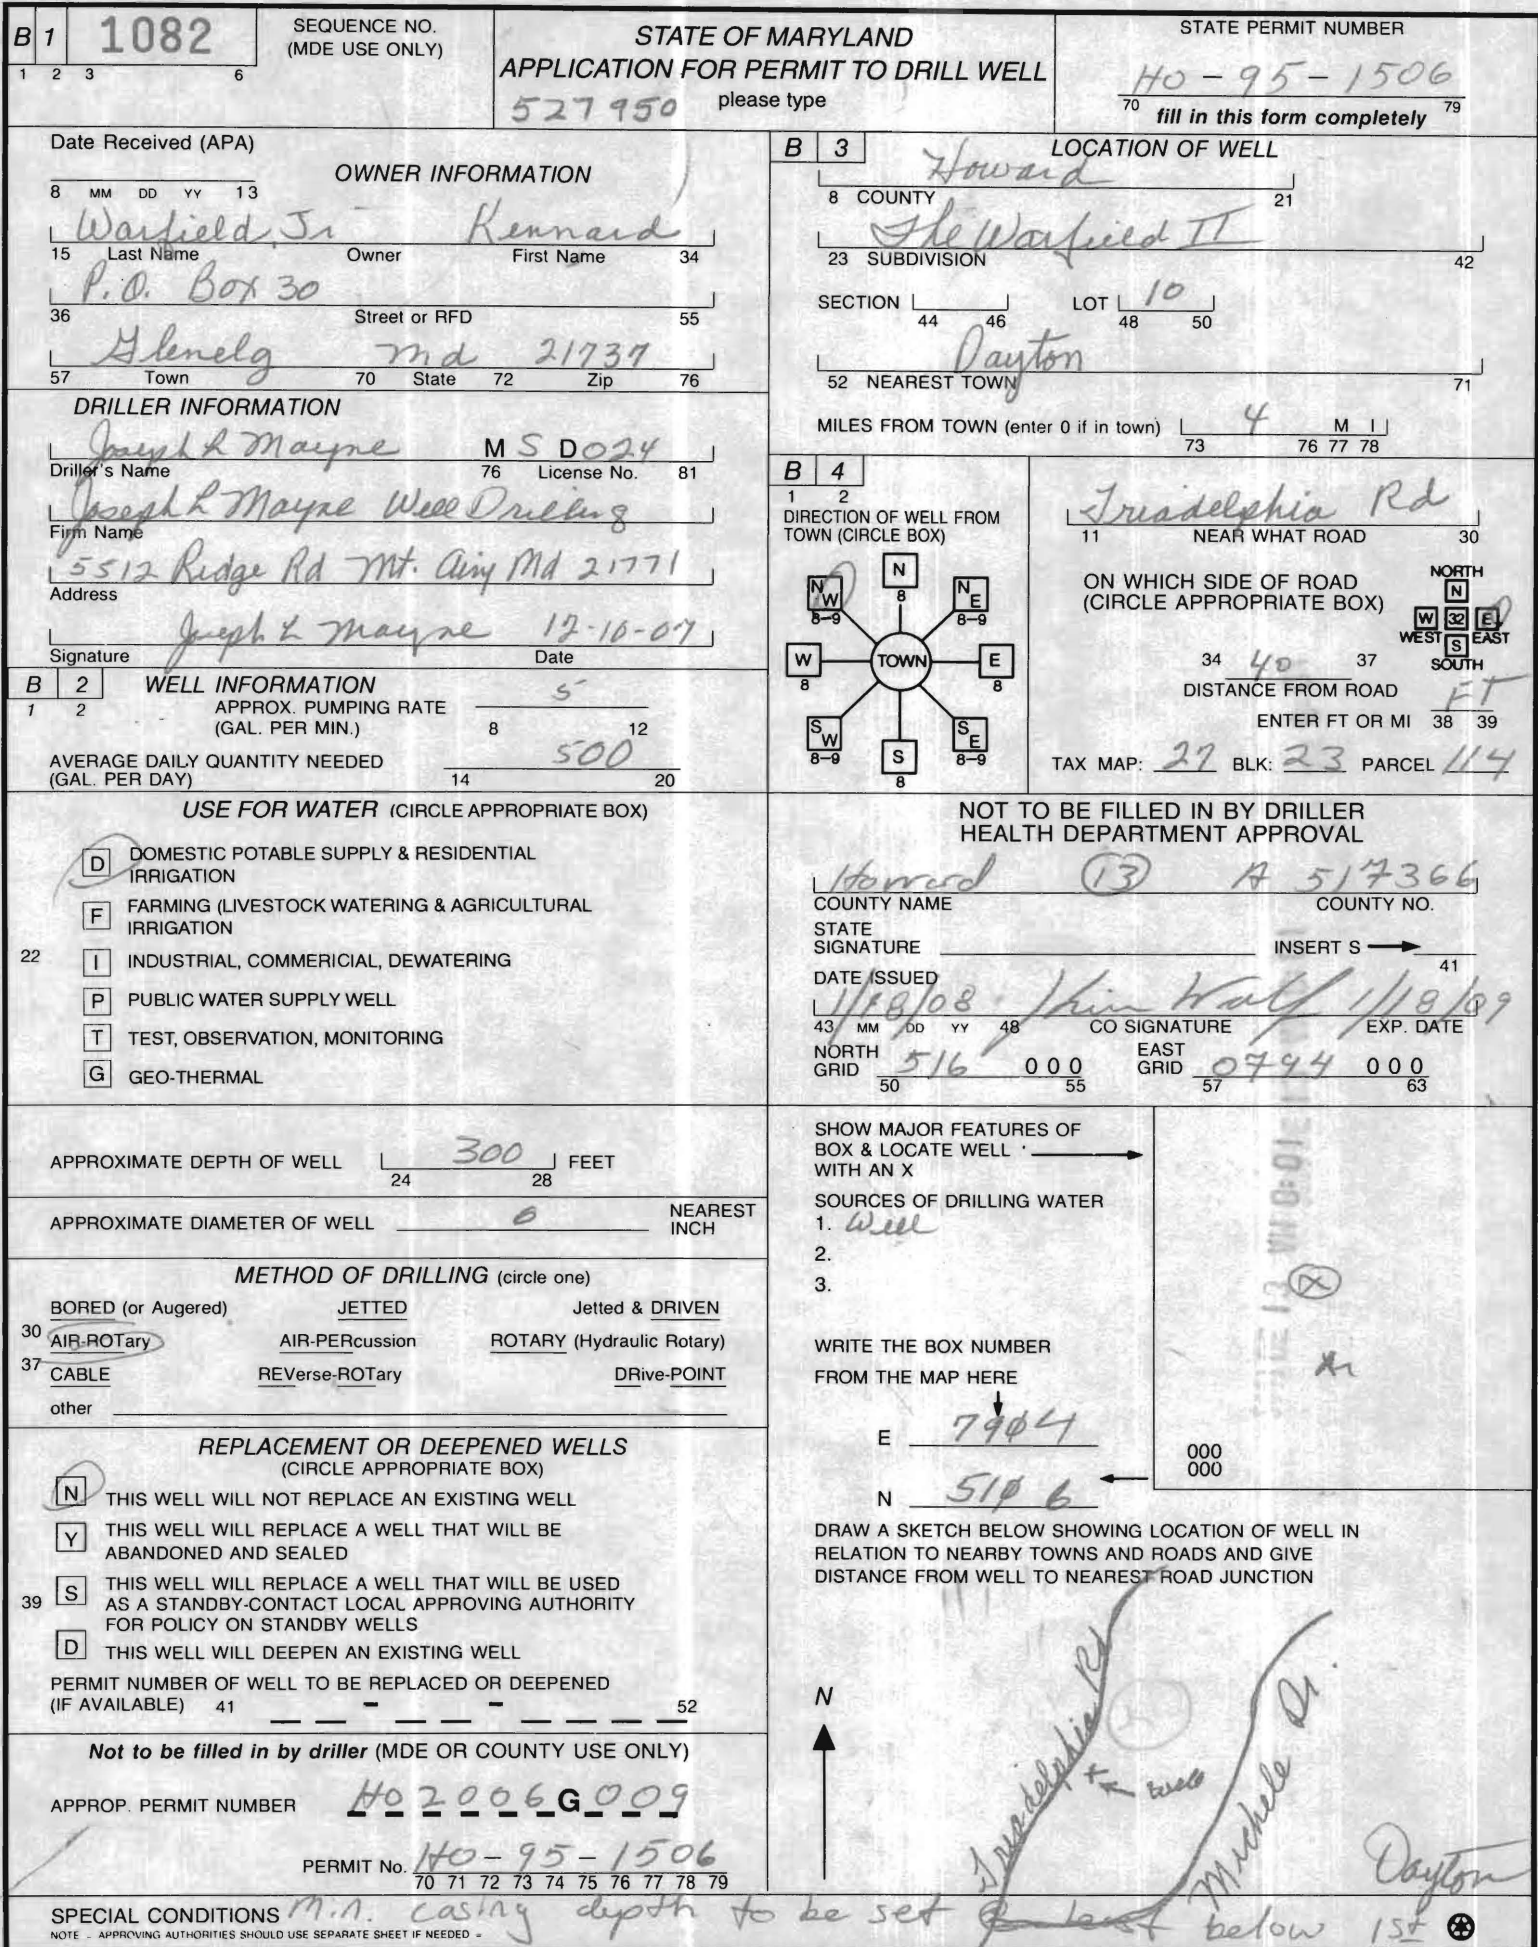 B 1 1082
1 2 3 6
SEQUENCE NO.
(MDE USE ONLY)
STATE OF MARYLAND
APPLICATION FOR PERMIT TO DRILL WELL
527950 please type
STATE PERMIT NUMBER
HO-95-1506
70 79
fill in this form completely
Date Received (APA)
8 MM DD YY 13
OWNER INFORMATION
Warfield, Jr Kennard
15 Last Name Owner First Name 34
P.O. Box 30
36 Street or RFD 55
Glenelg Md 21737
57 Town 70 State 72 Zip 76
DRILLER INFORMATION
Joseph L Mayne M S D 024
Driller's Name 76 License No. 81
Joseph L Mayne Well Drilling
Firm Name
5512 Ridge Rd Mt. Airy Md 21771
Address
Joseph L Mayne 12-10-07
Signature Date
B 2 WELL INFORMATION
1 2
APPROX. PUMPING RATE 5
(GAL. PER MIN.) 8 12
AVERAGE DAILY QUANTITY NEEDED 500
(GAL. PER DAY) 14 20
USE FOR WATER (CIRCLE APPROPRIATE BOX)
D DOMESTIC POTABLE SUPPLY & RESIDENTIAL
IRRIGATION
F FARMING (LIVESTOCK WATERING & AGRICULTURAL
IRRIGATION
22 I INDUSTRIAL, COMMERICIAL, DEWATERING
P PUBLIC WATER SUPPLY WELL
T TEST, OBSERVATION, MONITORING
G GEO-THERMAL
APPROXIMATE DEPTH OF WELL 300 FEET
24 28
APPROXIMATE DIAMETER OF WELL 6 NEAREST
INCH
METHOD OF DRILLING (circle one)
BORED (or Augered) JETTED Jetted & DRIVEN
30 AIR-ROTary AIR-PERcussion ROTARY (Hydraulic Rotary)
37 CABLE REVerse-ROTary DRive-POINT
other
REPLACEMENT OR DEEPENED WELLS
(CIRCLE APPROPRIATE BOX)
N THIS WELL WILL NOT REPLACE AN EXISTING WELL
Y THIS WELL WILL REPLACE A WELL THAT WILL BE
ABANDONED AND SEALED
39 S THIS WELL WILL REPLACE A WELL THAT WILL BE USED
AS A STANDBY-CONTACT LOCAL APPROVING AUTHORITY
FOR POLICY ON STANDBY WELLS
D THIS WELL WILL DEEPEN AN EXISTING WELL
PERMIT NUMBER OF WELL TO BE REPLACED OR DEEPENED
(IF AVAILABLE) 41 - - 52
Not to be filled in by driller (MDE OR COUNTY USE ONLY)
APPROP. PERMIT NUMBER HO2006G009
PERMIT No. HO-95-1506
70 71 72 73 74 75 76 77 78 79
B 3 LOCATION OF WELL
Howard
8 COUNTY 21
The Warfield II
23 SUBDIVISION 42
SECTION LOT 10
44 46 48 50
Dayton
52 NEAREST TOWN 71
MILES FROM TOWN (enter 0 if in town) 4 M I
73 76 77 78
B 4
1 2
DIRECTION OF WELL FROM
TOWN (CIRCLE BOX)
N
8
NW NE
8-9 8-9
W TOWN E
8 8
SW SE
8-9 8-9
S
8
Triadelphia Rd
11 NEAR WHAT ROAD 30
ON WHICH SIDE OF ROAD
(CIRCLE APPROPRIATE BOX)
NORTH
N
W 32 E
WEST EAST
S
SOUTH
34 40 37
DISTANCE FROM ROAD
FT
ENTER FT OR MI 38 39
TAX MAP: 27 BLK: 23 PARCEL 114
NOT TO BE FILLED IN BY DRILLER
HEALTH DEPARTMENT APPROVAL
Howard 13 A 517366
COUNTY NAME COUNTY NO.
STATE
SIGNATURE INSERT S
41
DATE ISSUED
1/18/08 1/18/09
43 MM DD YY 48 CO SIGNATURE EXP. DATE
NORTH
GRID 516 000
50 55
EAST
GRID 0794 000
57 63
SHOW MAJOR FEATURES OF
BOX & LOCATE WELL
WITH AN X
SOURCES OF DRILLING WATER
1. Well
2.
3.
X
WRITE THE BOX NUMBER
FROM THE MAP HERE
E 7904
N 5106
000
000
DRAW A SKETCH BELOW SHOWING LOCATION OF WELL IN
RELATION TO NEARBY TOWNS AND ROADS AND GIVE
DISTANCE FROM WELL TO NEAREST ROAD JUNCTION
N
Triadelphia Rd
well
Michele Dr.
Dayton
SPECIAL CONDITIONS Min. casing depth to be set below 1st
NOTE - APPROVING AUTHORITIES SHOULD USE SEPARATE SHEET IF NEEDED =